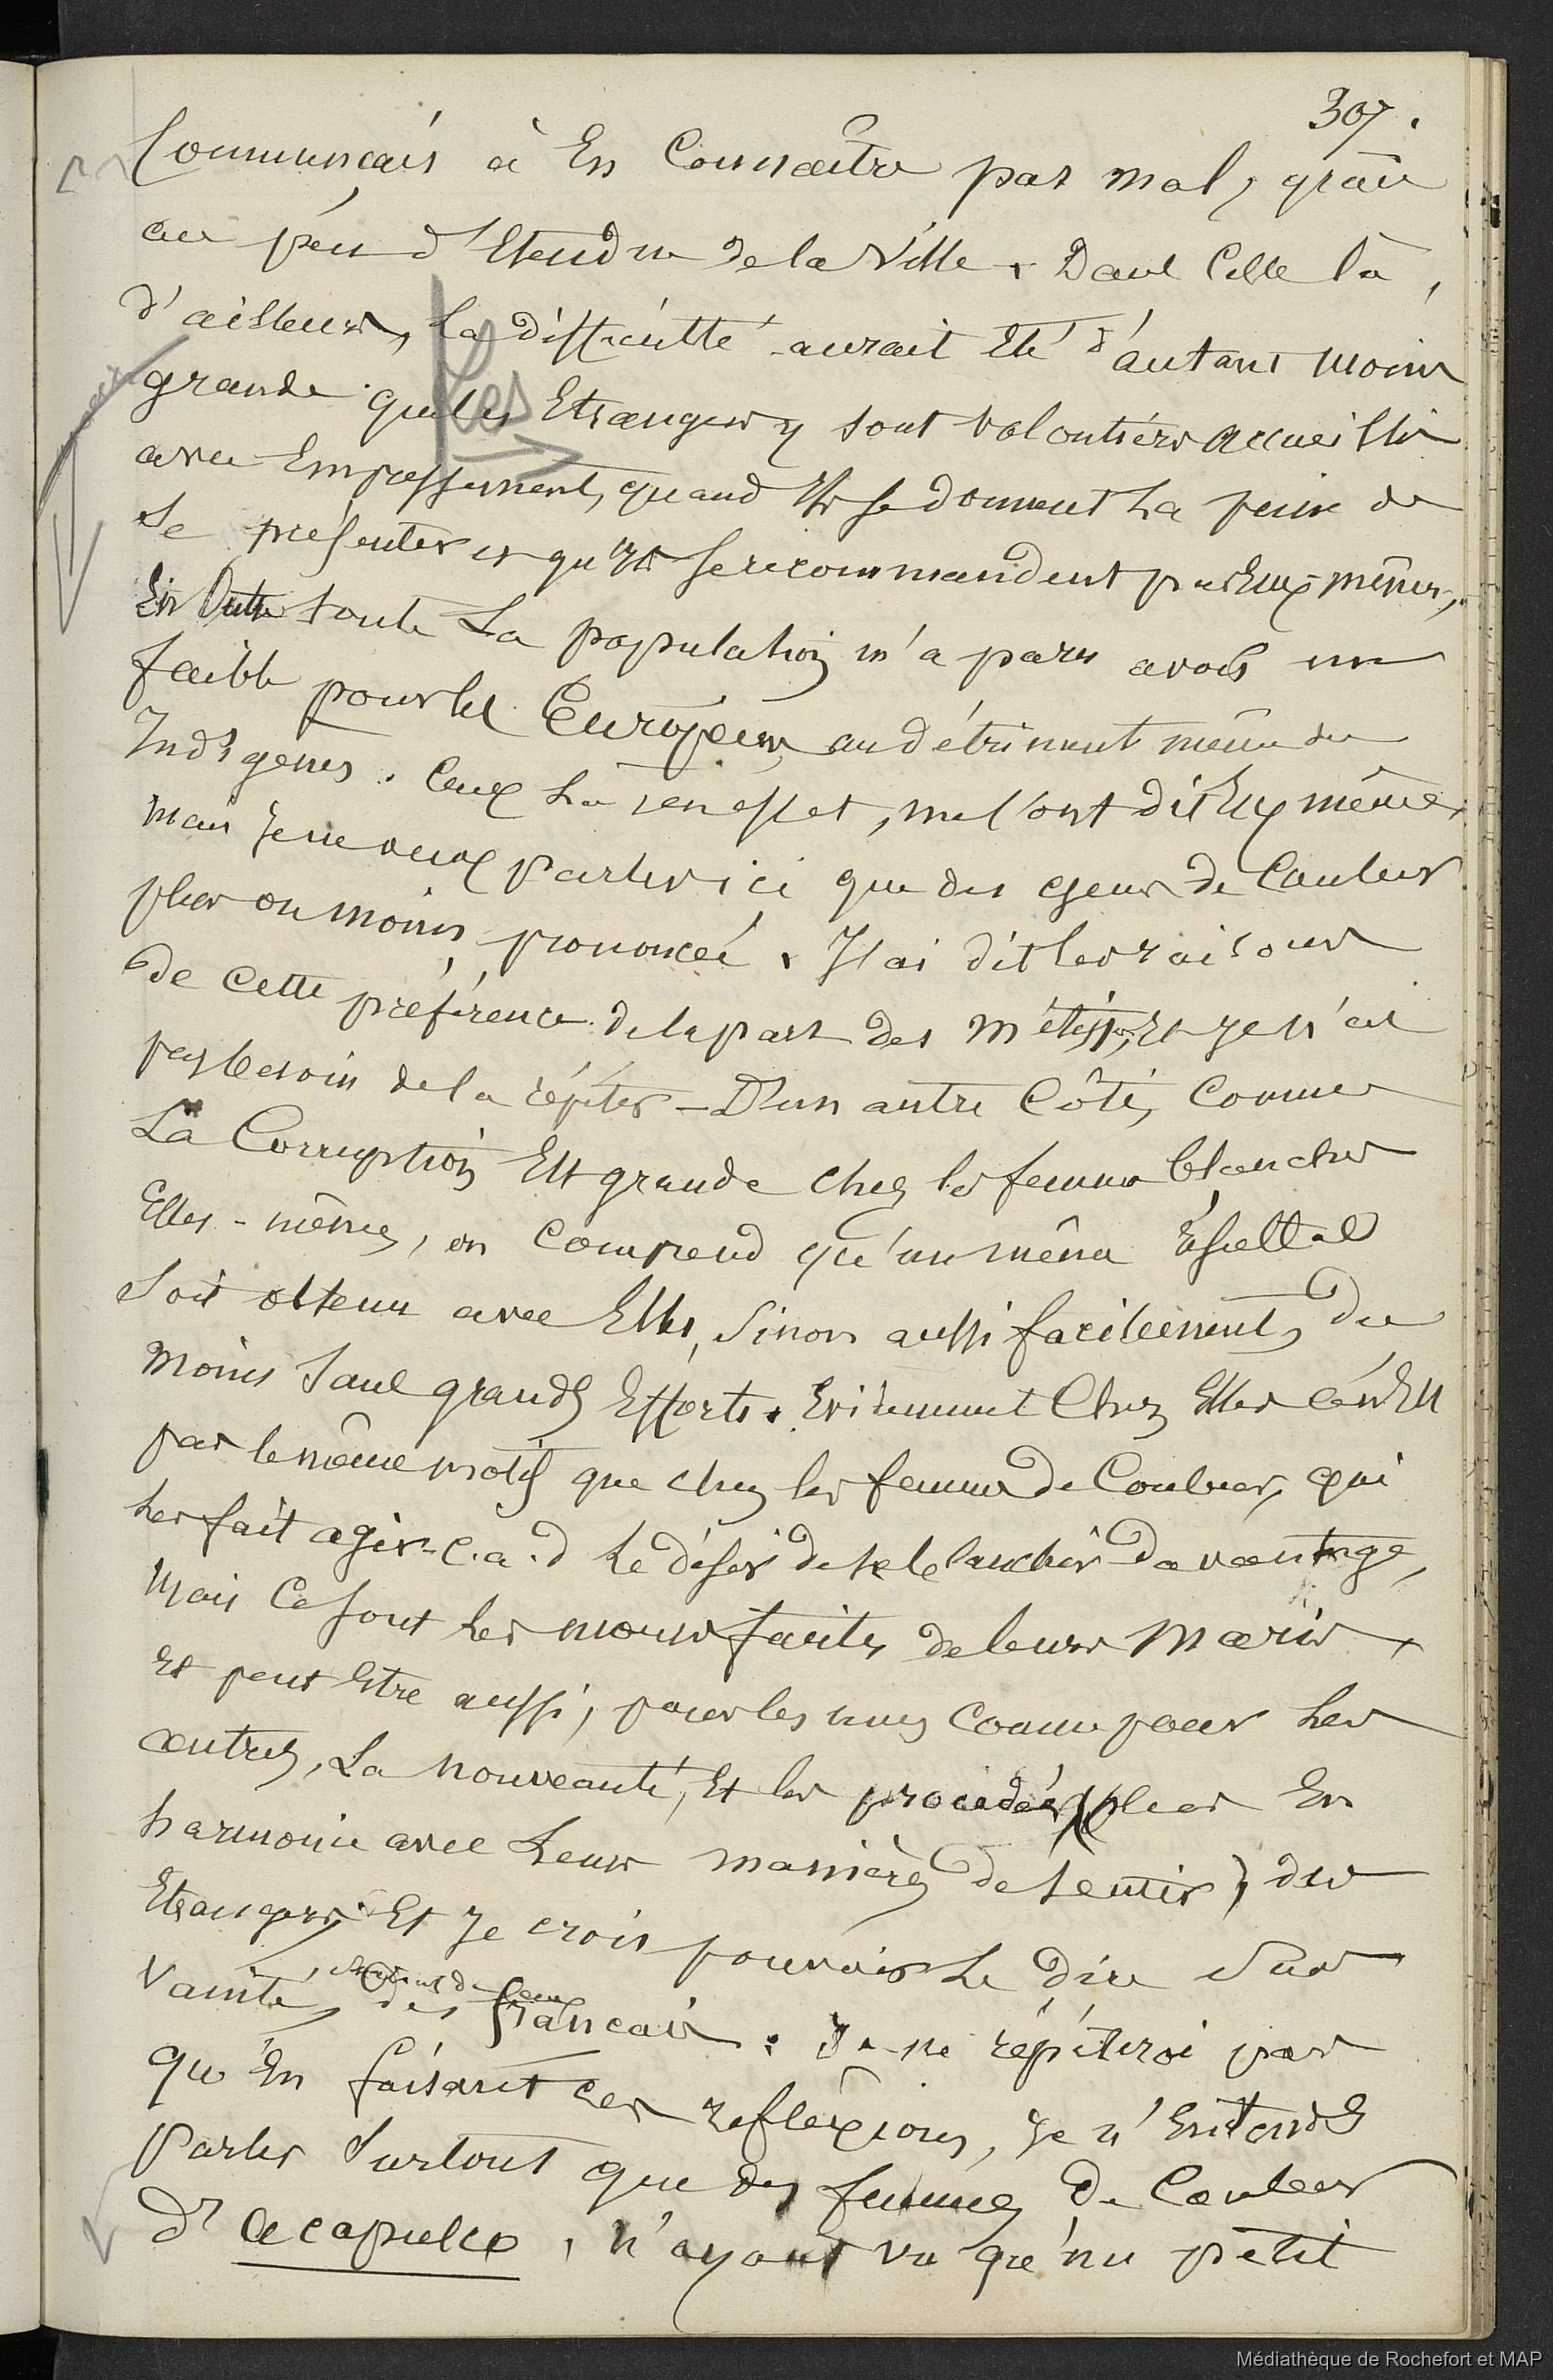 307.
Commençais à En Connaître pas mal, grâce
au peu d'Etendue de la Ville. Dans Celle là,
d'ailleurs, La difficulté aurait Eté d'autant moins
grande que les Etrangers y sont volontiers accueillis
Les
avec Empressement, quand Ils se donnent La peine de
se présenter et qu'ils se recommandent par Eux-mêmes,
En Outre toute La population m'a paru avoir un
faible pour les Européens, au détriment même des
Indigènes. Ceux La en effet, me l'ont dit Eux mêmes,
mais Je ne veux parler ici que des gens de Couleur
plus ou moins prononcée. J'ai dit les raisons
de cette préférence de la part des métisses, et je n'ai
pas besoin de la répéter – D'un autre Côté, Comme
La Corruption Est grande chez les femmes blanches
Elles-mêmes, on Comprend qu'un même résultat
soit obtenu avec Elles, Sinon aussi facilement, du
moins sans grands Efforts. Evidemment Chez Elles ce n'Est
pas le même motif que chez les femmes de Couleur, qui
Les fait agir – C.a.d Le désir de se blanchir davantage,
mais Ce sont les mœurs faciles de leurs Maris,
Et peut Etre aussi, pour les unes Comme pour Les
autres, La nouveauté, Et les procédés (plus En
harmonie avec Leurs manières de sentir), des
Etrangers. Et Je crois pouvoir Le dire sans
Vanité, des français. Je ne répéterai pas
qu'En faisant ces reflexions, Je n'Entends
Parler Surtout que des femmes de Couleur
D'acapulco, n'ayant vu qu'un petit
Médiathèque de Rochefort et MAP